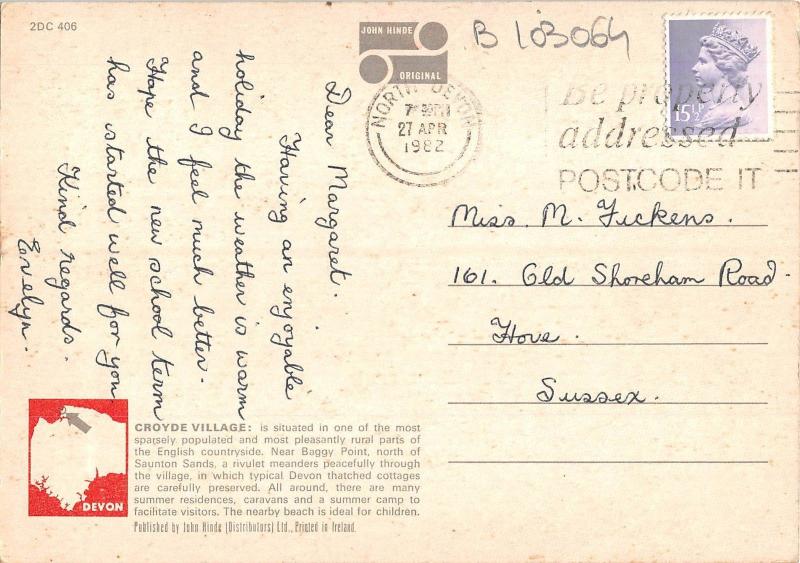 2DC 406
JOHN HINDE
ORIGINAL
B 103064
15½P
NORTH DEVON
27 APR
1982
Be properly
addressed
POSTCODE IT
Dear Margaret.
Having an enjoyable
holiday the weather is warm
and I feel much better.
Hope the new school term
has started well for you
Kind regards.
Evelyn.
Miss. M. Fickens.
161. Old Shoreham Road.
Hove.
Sussex.
DEVON
CROYDE VILLAGE: is situated in one of the most
sparsely populated and most pleasantly rural parts of
the English countryside. Near Baggy Point, north of
Saunton Sands, a rivulet meanders peacefully through
the village, in which typical Devon thatched cottages
are carefully preserved. All around, there are many
summer residences, caravans and a summer camp to
facilitate visitors. The nearby beach is ideal for children.
Published by John Hinde (Distributors) Ltd., Printed in Ireland.